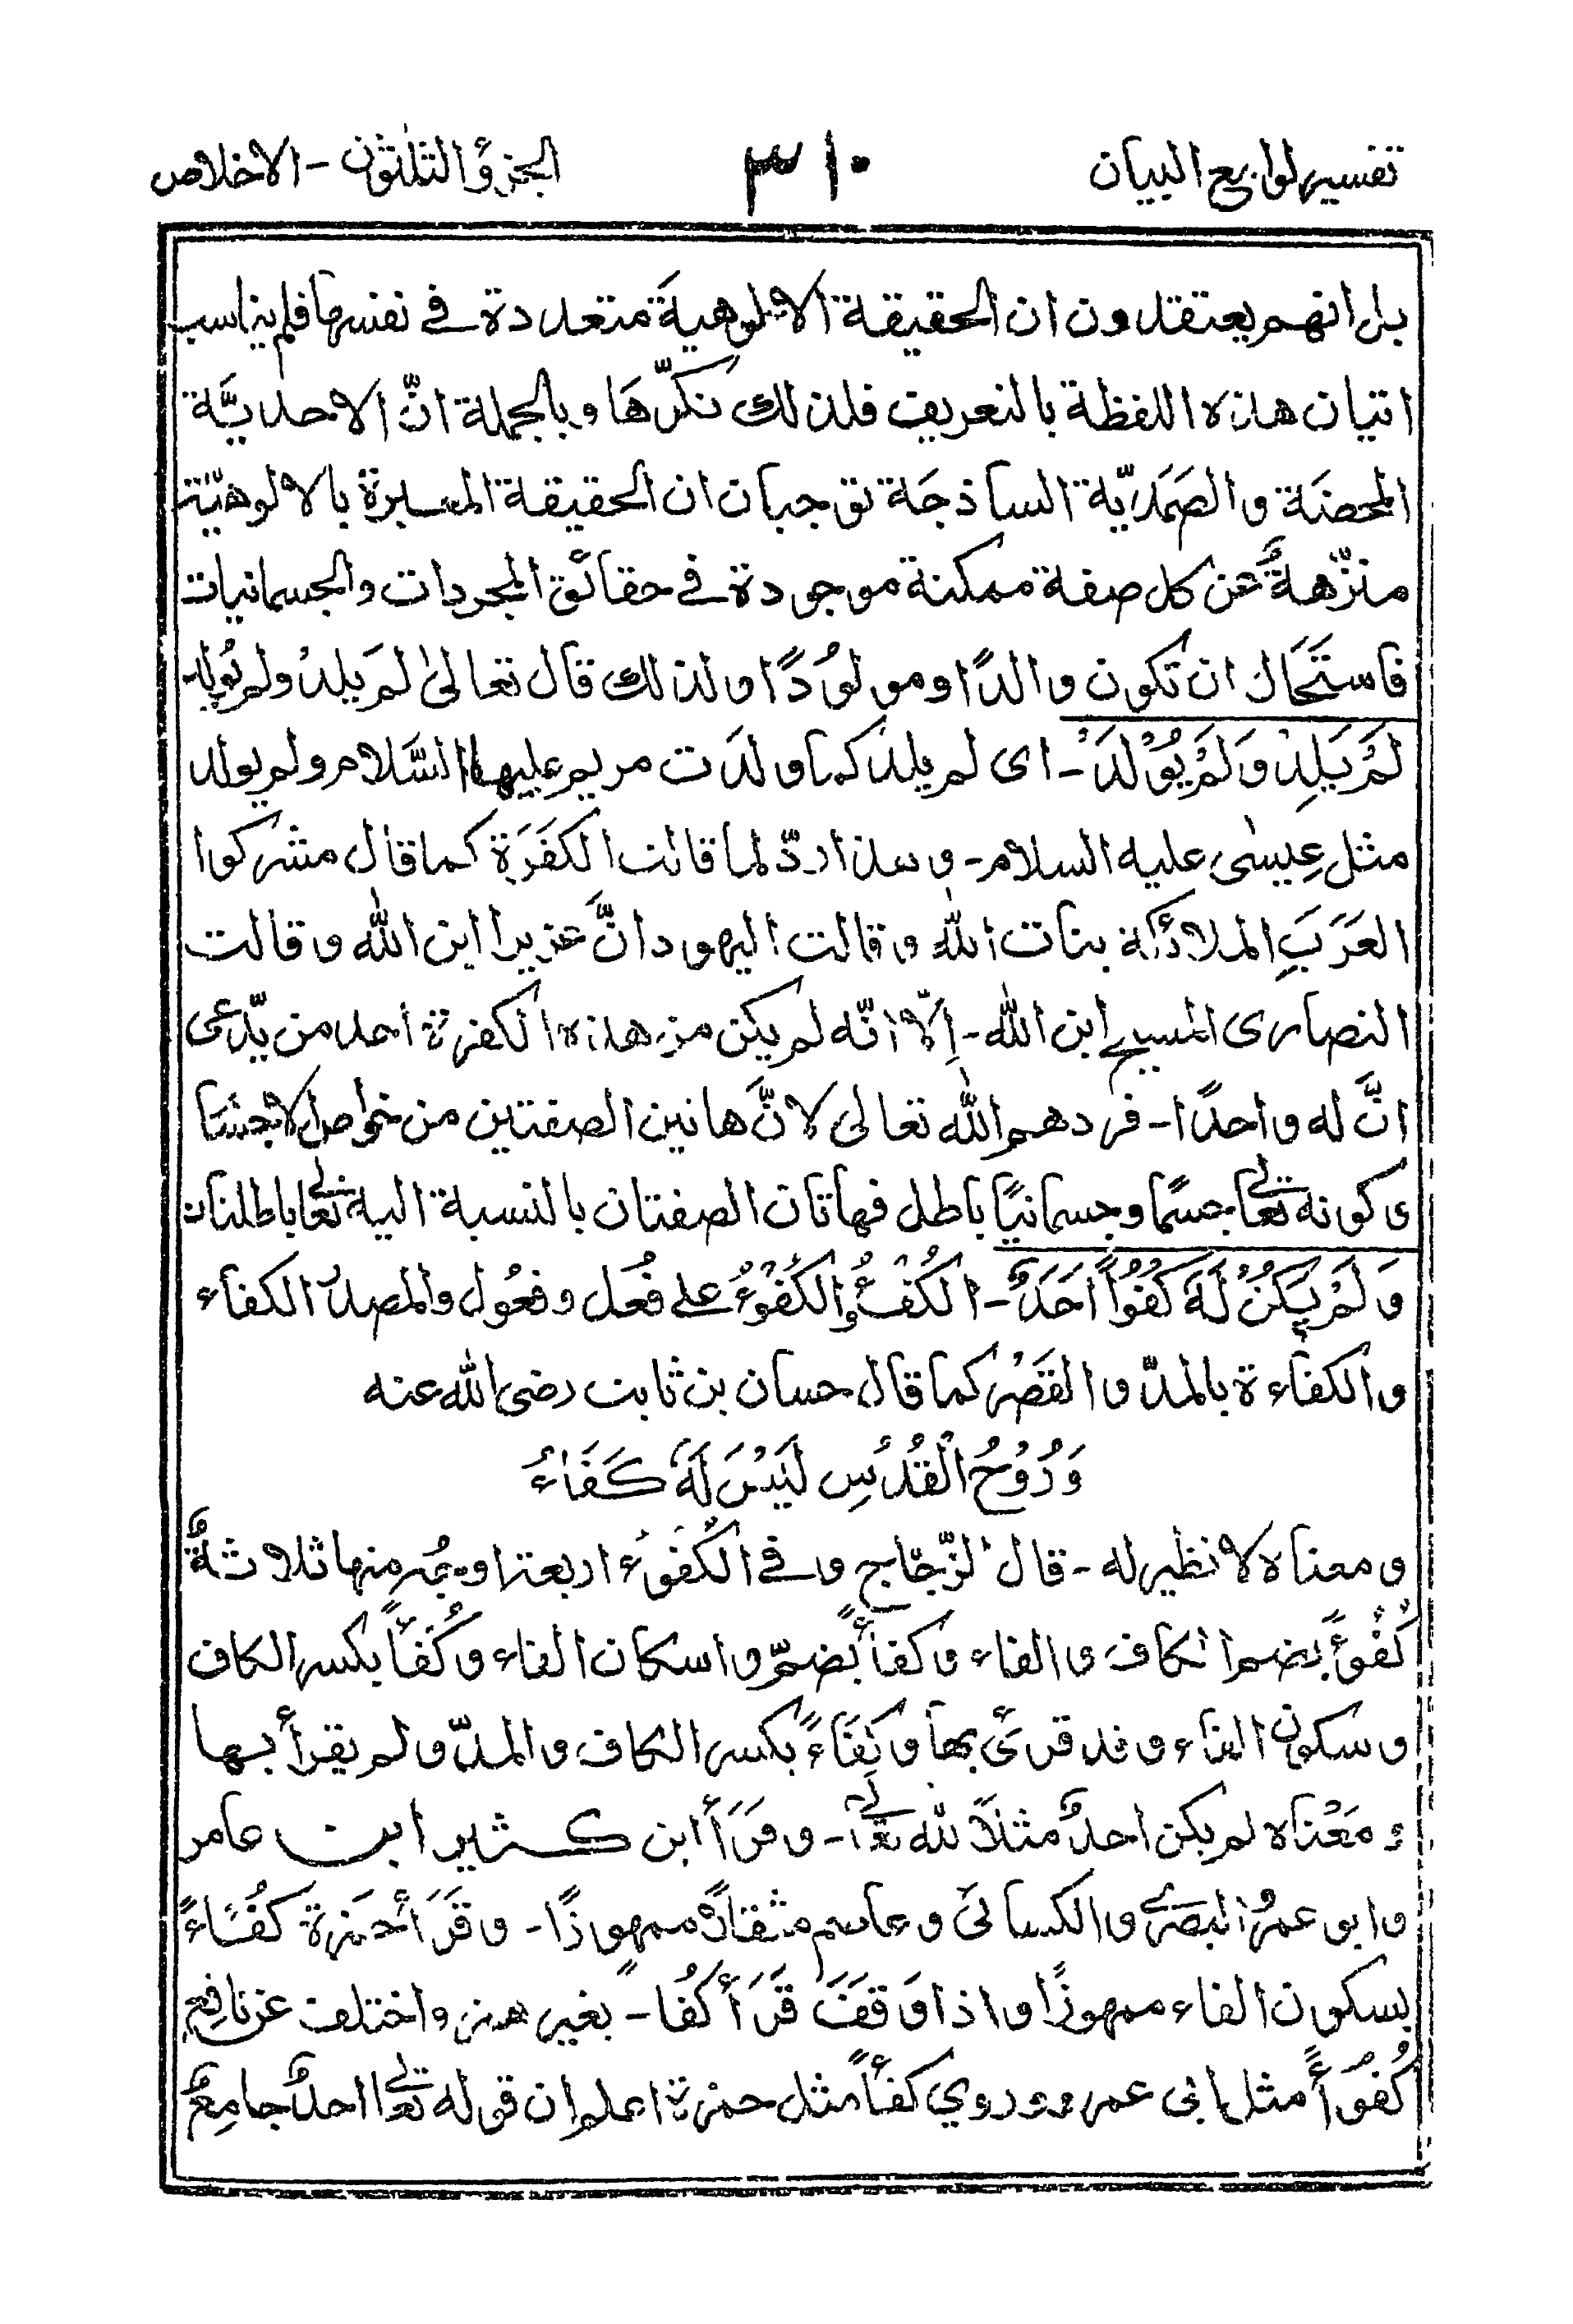 تفسير لوامع البيان
٣١٠
الجزؤ الثلثون - الاخلاص
بل انهم يعتقدون ان الحقيقة الالوهية متعددة في نفسها فلم يناسب
اتيان هذه اللفظة بالتعريف فلذلك نكّرها وبالجملة انّ الاحديّة
المحضة والصمديّة الساذجة توجبان ان الحقيقة المعبرة بالالوهيّة
منزّهةٌ عن كل صفة ممكنة موجودة في حقائق المجردات والجسمانيات
فاستحال ان تكون والدًا ومولودًا ولذلك قال تعالىٰ لم يلد ولم يولد
لَمْ يَلِدْ وَلَمْ يُوْلَدْ - اى لم يلد كما ولدت مريم عليها السّلام ولم يولد
مثل عِيسٰى عليه السلام - وهذا ردّ لما قالت الكفَرَة كما قال مشركوا
العَرَبِ الملائكة بنات الله وقالت اليهود انَّ عزيرا ابن الله وقالت
النصارى المسيح ابن الله - اِلّا انّه لم يكن من هذه الكفرة احد من يّدعى
انَّ له واحدًا - فردهم الله تعالى لانَّ هاتين الصفتين من خواص الاجسا
ى كونه تعالى جسمًا وجسمانيًا باطل فهاتان الصفتان بالنسبة اليه تعالى باطلتان
وَلَمْ يَكُنْ لَهٗ كُفُوًا اَحَدٌ - الكُفْءُ والكُفُوْءُ على فُعْل وفُعُول والمصدر الكفاء
والكفاءة بالمدّ والقصر كما قال حسان بن ثابت رضى الله عنه
وَرُوْحُ الْقُدُسِ لَيْسَ لَهٗ كَفَاءُ
ومعناه لا نظير له - قال الزّجّاج وفي الكُفُوء اربعة اوجه منها ثلاثةٌ
كُفُوءً بضم الكاف والفاء وكفأً بضمّ واسكان الفاء وكُفأً بكسر الكاف
وسكون الفاء وقد قرئَ بها وكفَاءً بكسر الكاف والمدّ ولم يقرأ بها
ء ومَعْناه لم يكن احدٌ مثلاً لله تعالى - وقرَأ ابن كثير ابن عامر
وابو عمرُ البصرى والكسائى وعاصم مثقلاً مهموزًا - وقَرَأ حمزة كفُاءً
بسكون الفاء مهموزًا واذا وَقفَ قَرَأ كُفا - بغير همز واختلف عن نافع
كُفوًأ مثل ابى عمرو وروي كفأً مثل حمزة اعلم ان قوله تعالى احدٌ جامعٌ